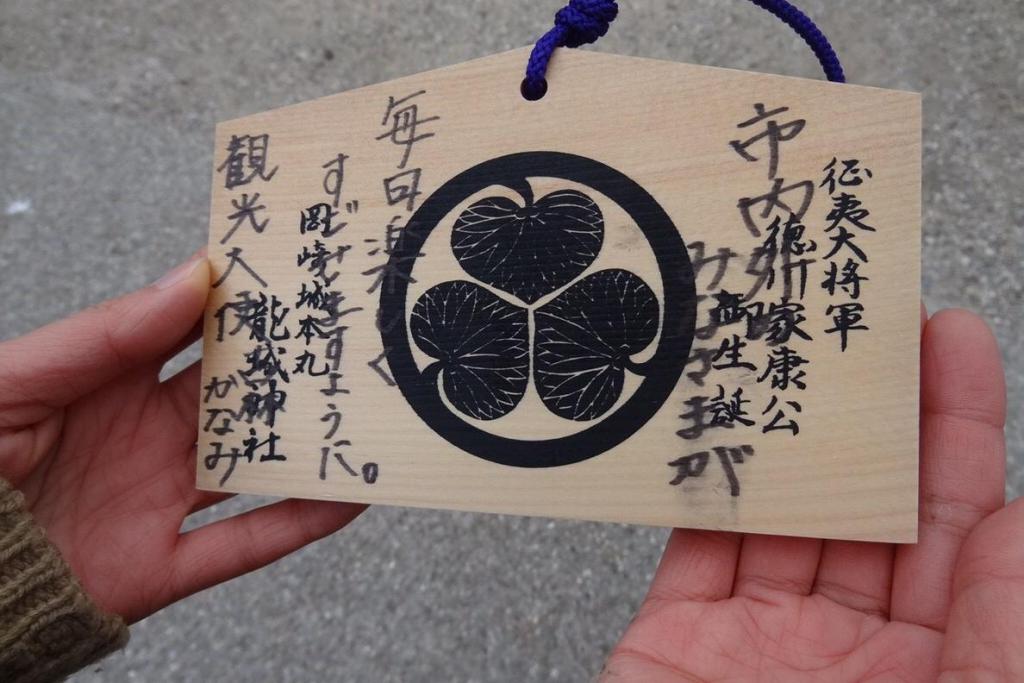 征夷大将軍
徳川家康公
御生誕
岡崎城本丸
龍城神社
市内外
みなさまが
毎日楽しく
すごせますように。
観光大使
かなみ